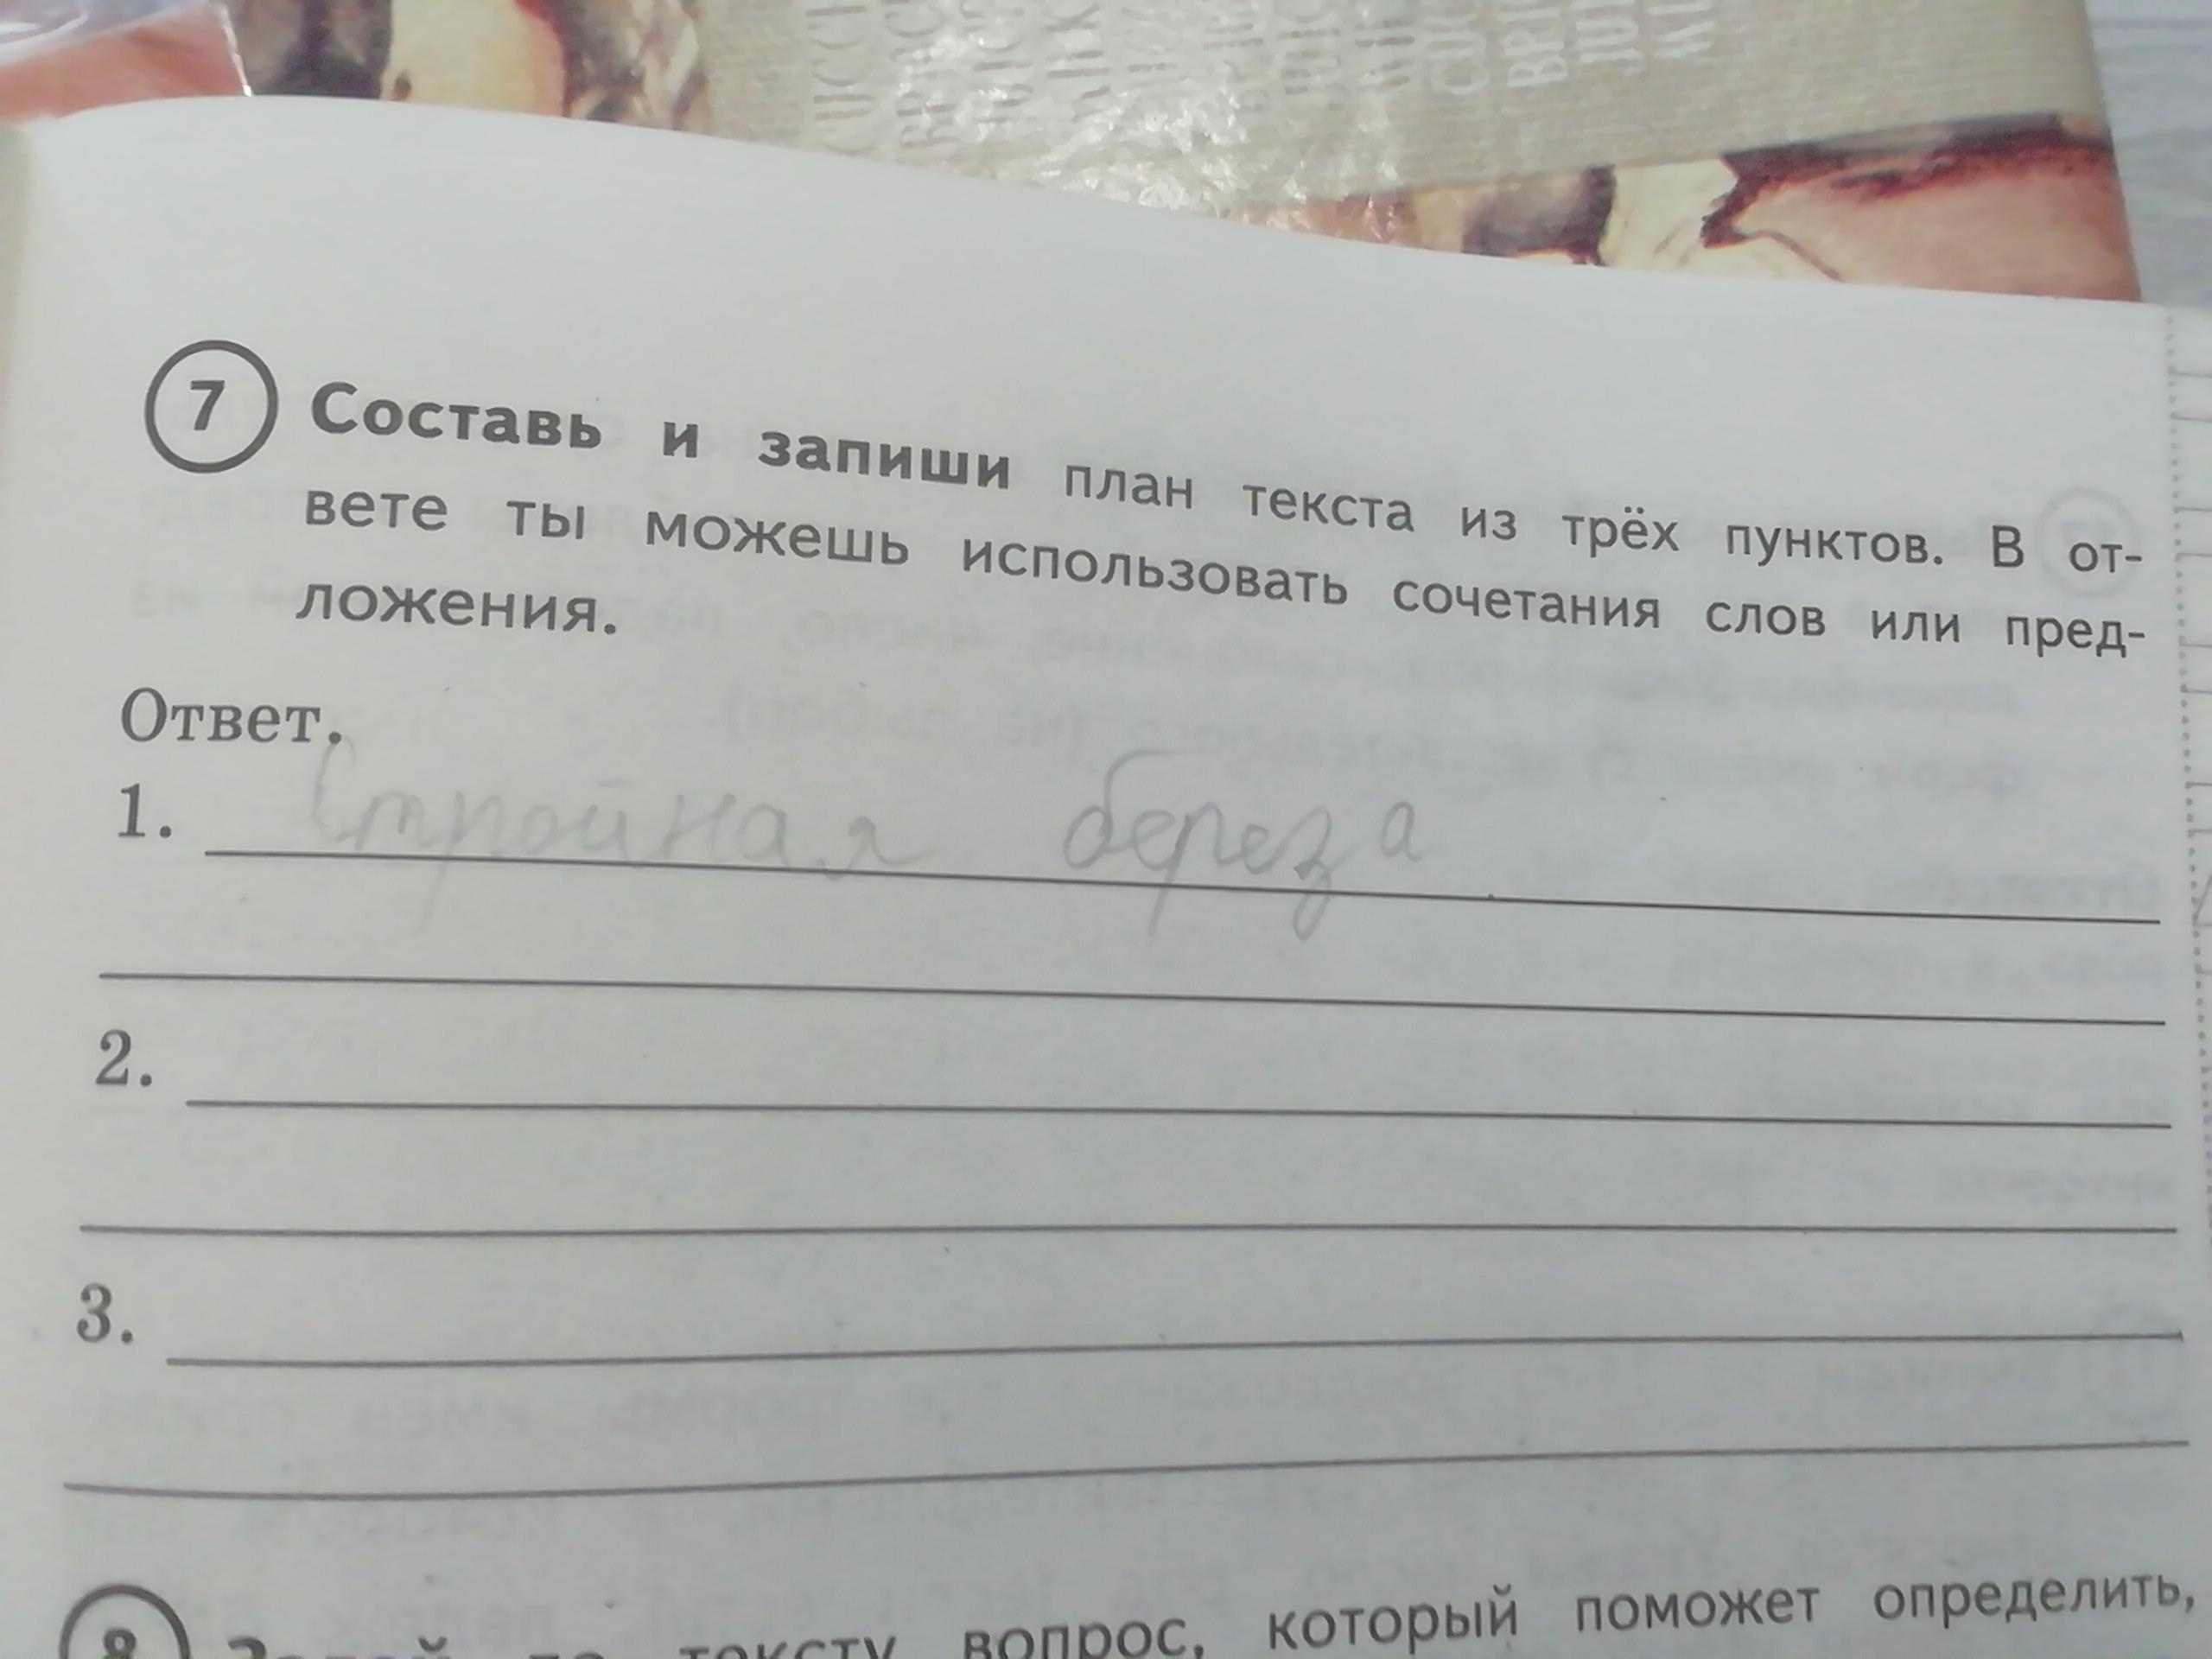 7 Составь и запиши план текста из трёх пунктов. В от-
вете ты можешь использовать сочетания слов или пред-
ложения.
Ответ.
1. Стройная береза
2.
3.
8 тексту вопрос, который поможет определить,